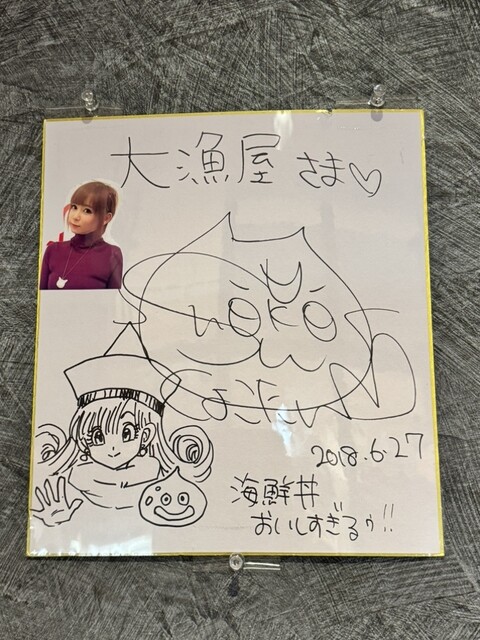 大漁屋さま♡
Shoko
2018.6.27
海鮮丼
おいしすぎるゥ!!